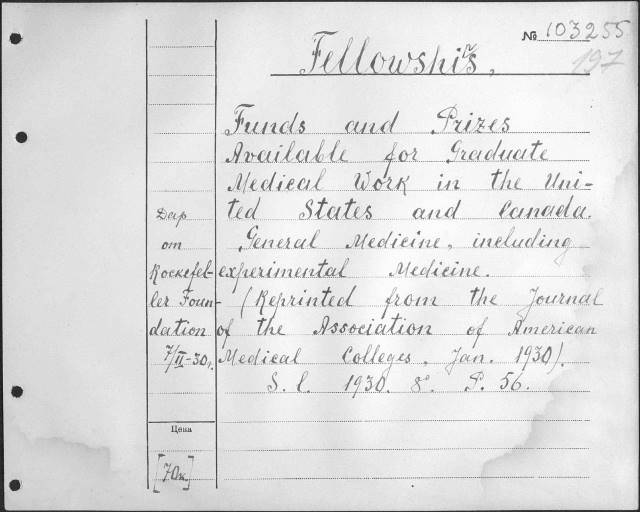 № 103255
197
Fellowships,
Funds and Prizes
Available for Graduate
Medical Work in the Uni-
ted States and Canada.
General Medicine, including
experimental Medicine.
(Reprinted from the Journal
of the Association of American
Medical Colleges, Jan. 1930).
S. l. 1930. 8°. P. 56.
Дар
от
Rockefel-
ler Foun-
dation
7/II-30г.
Цена